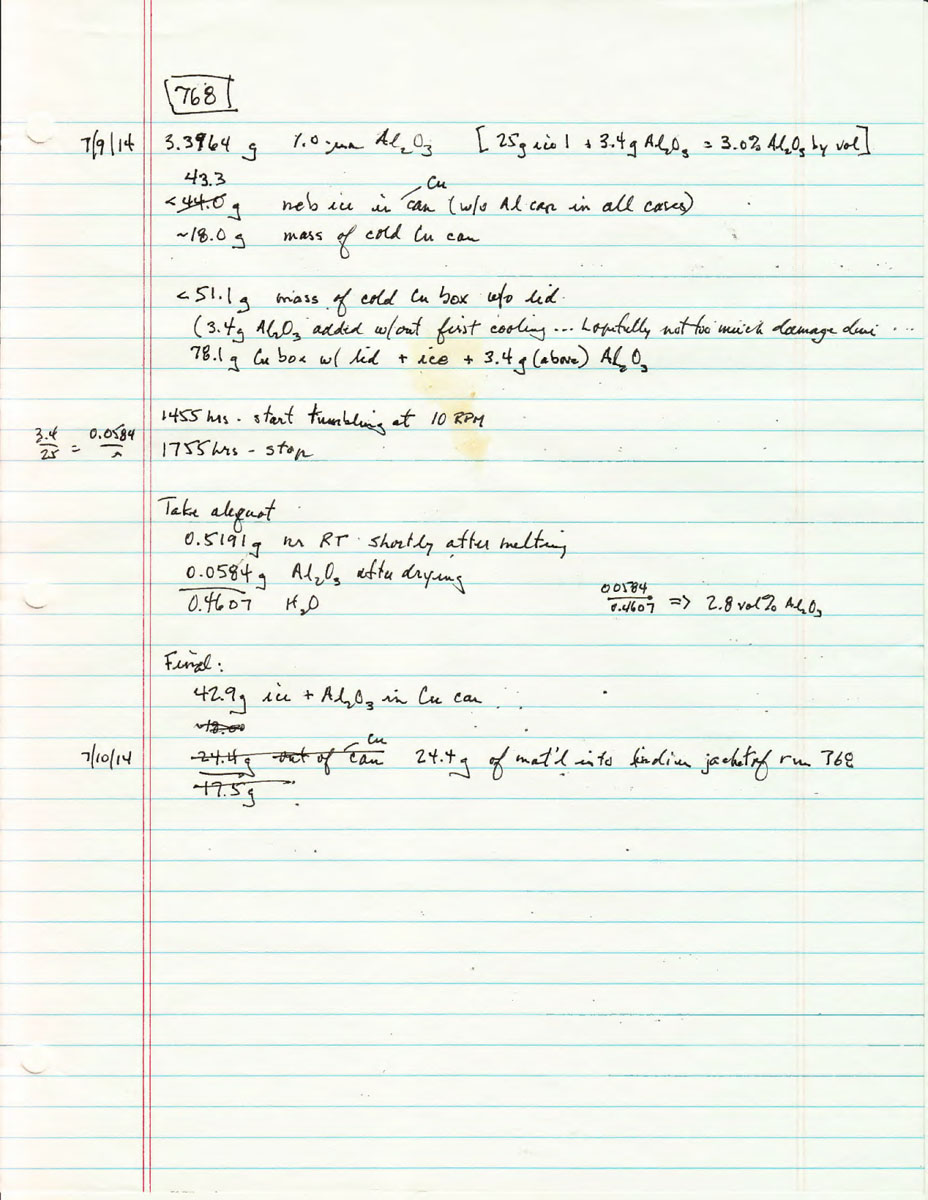 768
7/9/14 3.3964 g 1.0-µm Al2O3 [25g ice I + 3.4g Al2O3 = 3.0% Al2O3 by vol]
43.3 Cu
<44.0 g neb ice in can (w/o Al cap in all cases)
~18.0 g mass of cold Cu can
<51.1 g mass of cold Cu box w/o lid.
(3.4g Al2O3 added w/out first cooling... Hopefully not too much damage done ...
78.1 g Cu box w/ lid + ice + 3.4 g (above) Al2O3
1455 hrs - start tumbling at 10 RPM
3.4/25 = 0.0584/x
1755 hrs - stop
Take alequot
0.5191 g RT shortly after melting
0.0584 g Al2O3 after drying
0.4607 H2O 0.0584/0.4607 => 2.8 vol% Al2O3
Final:
42.9g ice + Al2O3 in Cu can
~18.00
Cu
7/10/14 24.4g out of can 24.4 g of mat'l into indium jacket of run 768
17.5g